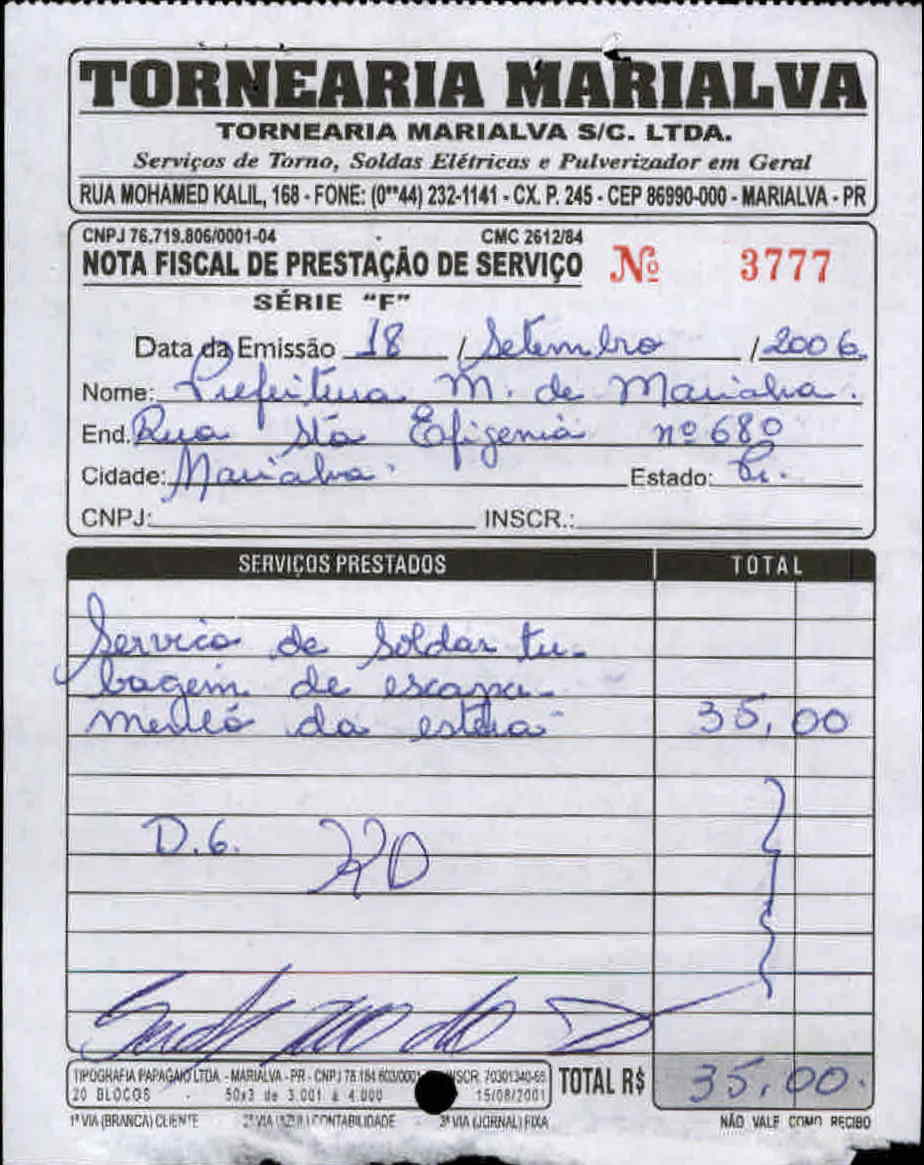 TORNEARIA MARIALVA
TORNEARIA MARIALVA S/C. LTDA.
Serviços de Torno, Soldas Elétricas e Pulverizador em Geral
RUA MOHAMED KALIL, 168 - FONE: (0**44) 232-1141 - CX. P. 245 - CEP 86990-000 - MARIALVA - PR
CNPJ 76.719.806/0001-04 CMC 2612/84
NOTA FISCAL DE PRESTAÇÃO DE SERVIÇO Nº 3777
SÉRIE "F"
Data da Emissão 18 / Setembro / 2006
Nome: Prefeitura M. de Marialva.
End. Rua Sta Efigenia nº 680
Cidade: Marialva. Estado: Pr.
CNPJ: INSCR.:
SERVIÇOS PRESTADOS TOTAL
Servico de Soldar tu-
bagem de escapa-
mento da esteira 35,00
D.6.
TIPOGRAFIA PAPAGAIO LTDA. - MARIALVA - PR - CNPJ INSCR. 70301340-68 TOTAL R$ 35,00.
20 BLOCOS - 50x3 de 3.001 a 4.000 15/08/2001
1ª VIA (BRANCA) CLIENTE 2ª VIA (AZUL) CONTABILIDADE 3ª VIA (JORNAL) FIXA NÃO VALE COMO RECIBO